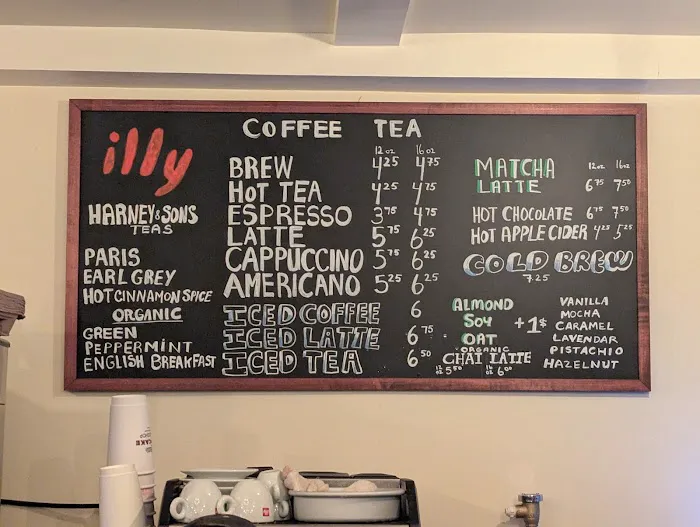 illy
HARNEY & SONS
TEAS
PARIS
EARL GREY
HOT CINNAMON SPICE
ORGANIC
GREEN
PEPPERMINT
ENGLISH BREAKFAST
COFFEE TEA
12 oz 16 oz
BREW 4 25 4 75
HOT TEA 4 25 4 75
ESPRESSO 3 75 4 75
LATTE 5 75 6 25
CAPPUCCINO 5 75 6 25
AMERICANO 5 25 6 25
ICED COFFEE 6
ICED LATTE 6 75
ICED TEA 6 50
MATCHA 12 oz 16 oz
LATTE 6 75 7 50
HOT CHOCOLATE 6 75 7 50
HOT APPLE CIDER 4 25 5 25
COLD BREW
7.25
ALMOND
SOY + 1$
OAT
ORGANIC
CHAI LATTE
12 oz 5 50 16 oz 6 00
VANILLA
MOCHA
CARAMEL
LAVENDAR
PISTACHIO
HAZELNUT